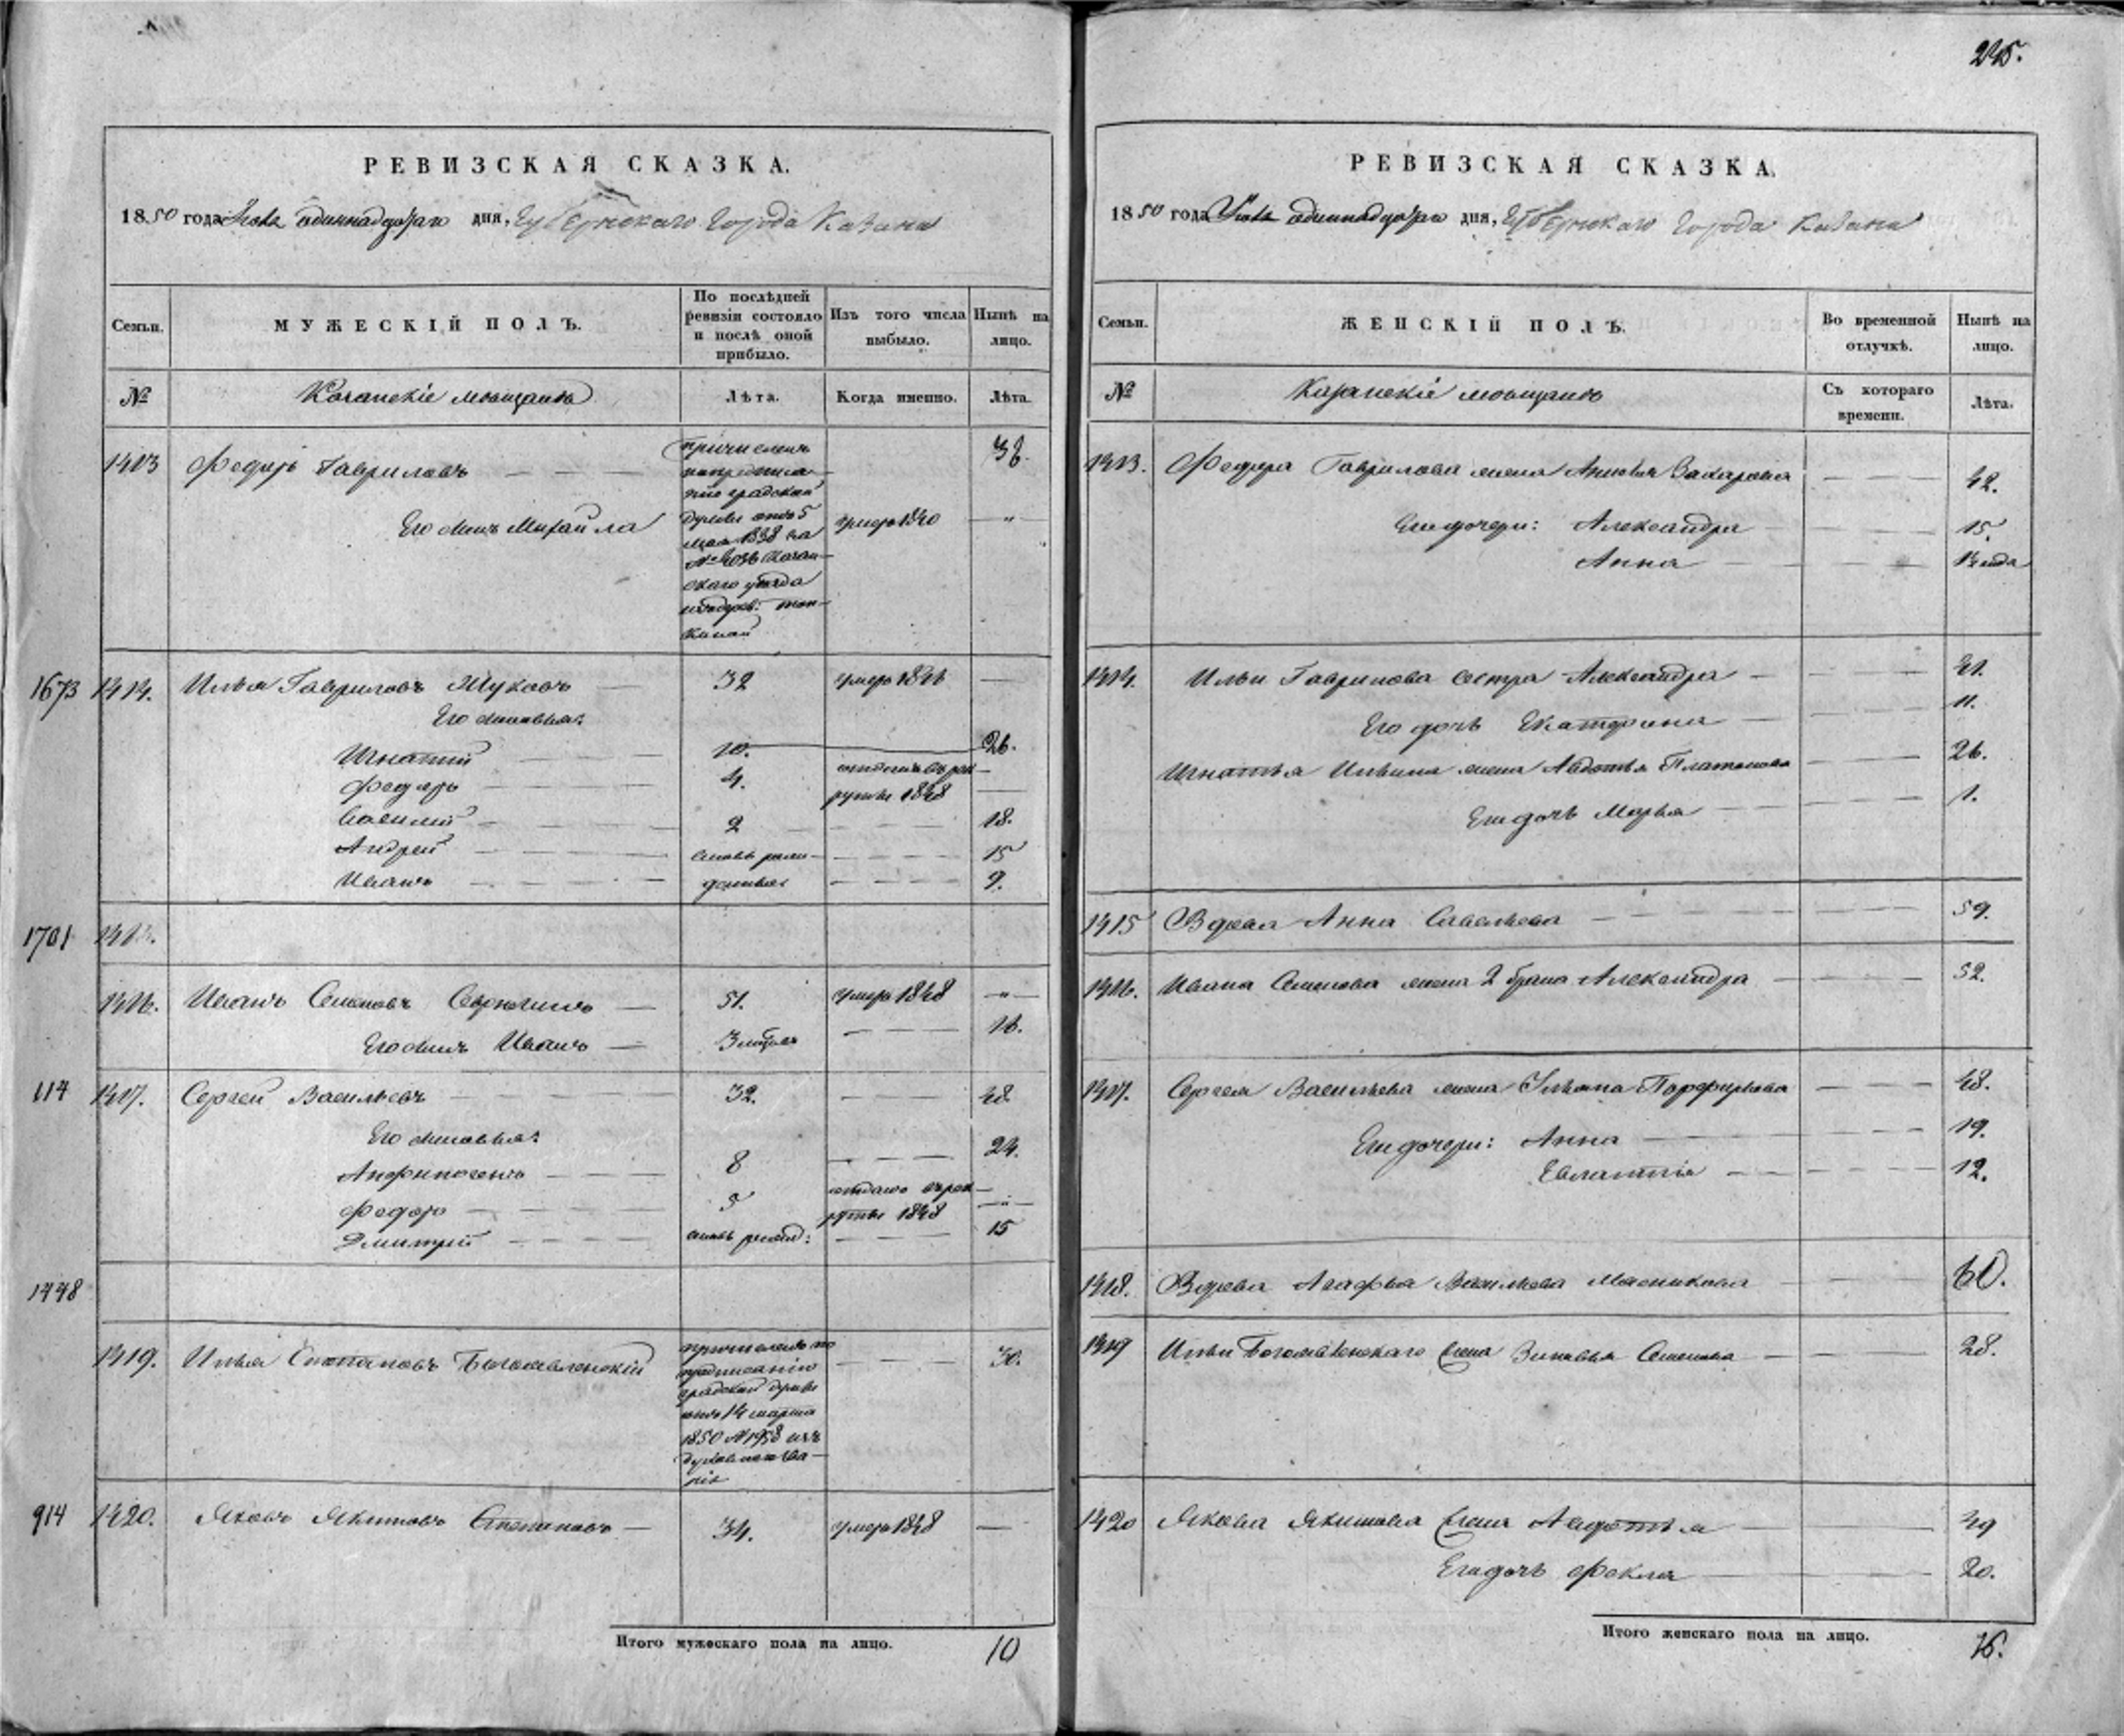 245.
РЕВИЗСКАЯ СКАЗКА.
1850 года одиннадцатаго дня, Губернскаго Города Казани
Семьи.
МУЖЕСКІЙ ПОЛЪ.
По послѣдней
ревизіи состояло
и послѣ оной
прибыло.
Изъ того числа
выбыло.
Нынѣ на
лицо.
№
Казанскіе мѣщанѣ
Лѣта.
Когда именно.
Лѣта.
1413 Федоръ Гавриловъ
причисленъ
градской
думы отъ 5
мая 1838 за
Казан-
скаго уѣзда
38.
Его сынъ Михайла умеръ 1840 — " —
1673 1414. Илья Гавриловъ Жуковъ 32 умеръ 1846 —
Его сыновья:
Игнатій 10. 26.
Федоръ 4. отданъ въ рек-
руты 1848 —
Василій 2 18.
Андрей вновь рож- 15
Иванъ денные 9.
1701 1415.
1416. Иванъ Семеновъ 51. умеръ 1848 — " —
Его сынъ Иванъ 16.
114 1417. Сергей Васильевъ 32. 48
Его сыновья:
Анфиногенъ 8 24.
Федоръ 5 отданъ въ рек-
руты 1848 — " —
Дмитрій вновь рожд: 15
1448
1419. Илья Степановъ Богоявленскій
причисленъ по
предписанію
градской думы
отъ 14 марта
1850 № 1958 изъ
духовнаго зва-
нія
30.
914 1420. Яковъ Якимовъ Степановъ 34. умеръ 1848 —
Итого мужескаго пола на лицо. 10
РЕВИЗСКАЯ СКАЗКА.
1850 года одиннадцатаго дня, Губернскаго Города Казани
Семьи.
ЖЕНСКІЙ ПОЛЪ.
Во временной
отлучкѣ.
Нынѣ на
лицо.
№
Казанскіе мѣщанѣ
Съ котораго
времени.
Лѣта.
1413. Федора Гаврилова жена Захарова 42.
Ея дочери: Александра 15.
Анна
1414. Ильи Гаврилова сестра Александра 41.
Его дочь Екатерина 11.
Игнатья Ильина жена Авдотья Платонова 26.
Ея дочь Марья 1.
1415 Вдова Анна Савельева 59.
1416. Ивана Семенова жена 2 брака Александра 52.
1417. Сергея Васильева жена Ульяна Порфирьева 48.
Ея дочери: Анна 19.
Евлампія 12.
1418. Вдова Агафья Васильева Масникова 60.
1419 Ильи Богоявленскаго жена Зиновья Семенова 28.
1420 Якова Якимова жена Авдотья 49
Ея дочь Фекла 20.
Итого женскаго пола на лицо. 16.